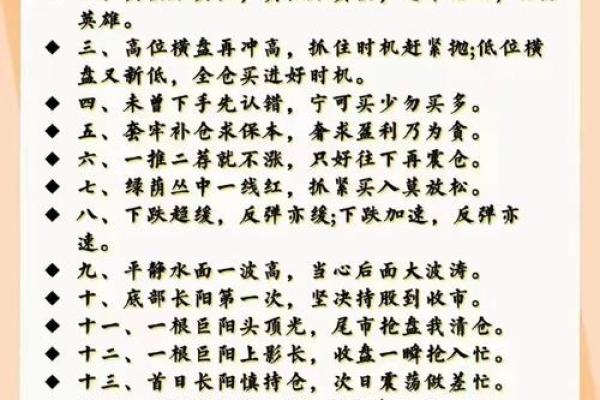 英雄。
◆ 三、高位横盘再冲高，抓住时机赶紧抛;低位横
盘又新低，全仓买进好时机。
◆ 四、未曾下手先认错，宁可买少勿买多。
◆ 五、套牢补仓求保本，奢求盈利乃为贪。
◆ 六、一推二荐就不涨，只好往下再震仓。
◆ 七、绿荫丛中一线红，抓紧买入莫放松。
◆ 八、下跌趋缓，反弹亦缓;下跌加速，反弹亦
速。
◆ 九、平静水面一波高，当心后面大波涛。
◆ 十、底部长阳第一次，坚决持股到收市。
◆ 十一、一根巨阳头顶光，尾市抢盘我清仓。
◆ 十二、一根巨阳上影长，收盘一瞬抢入忙。
◆ 十三、首日长阳慎持仓，次日震荡做差忙。